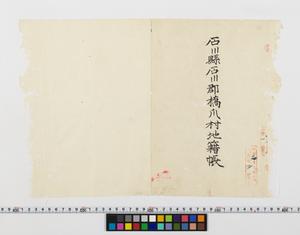 石川縣石川郡橋爪村地籍帳